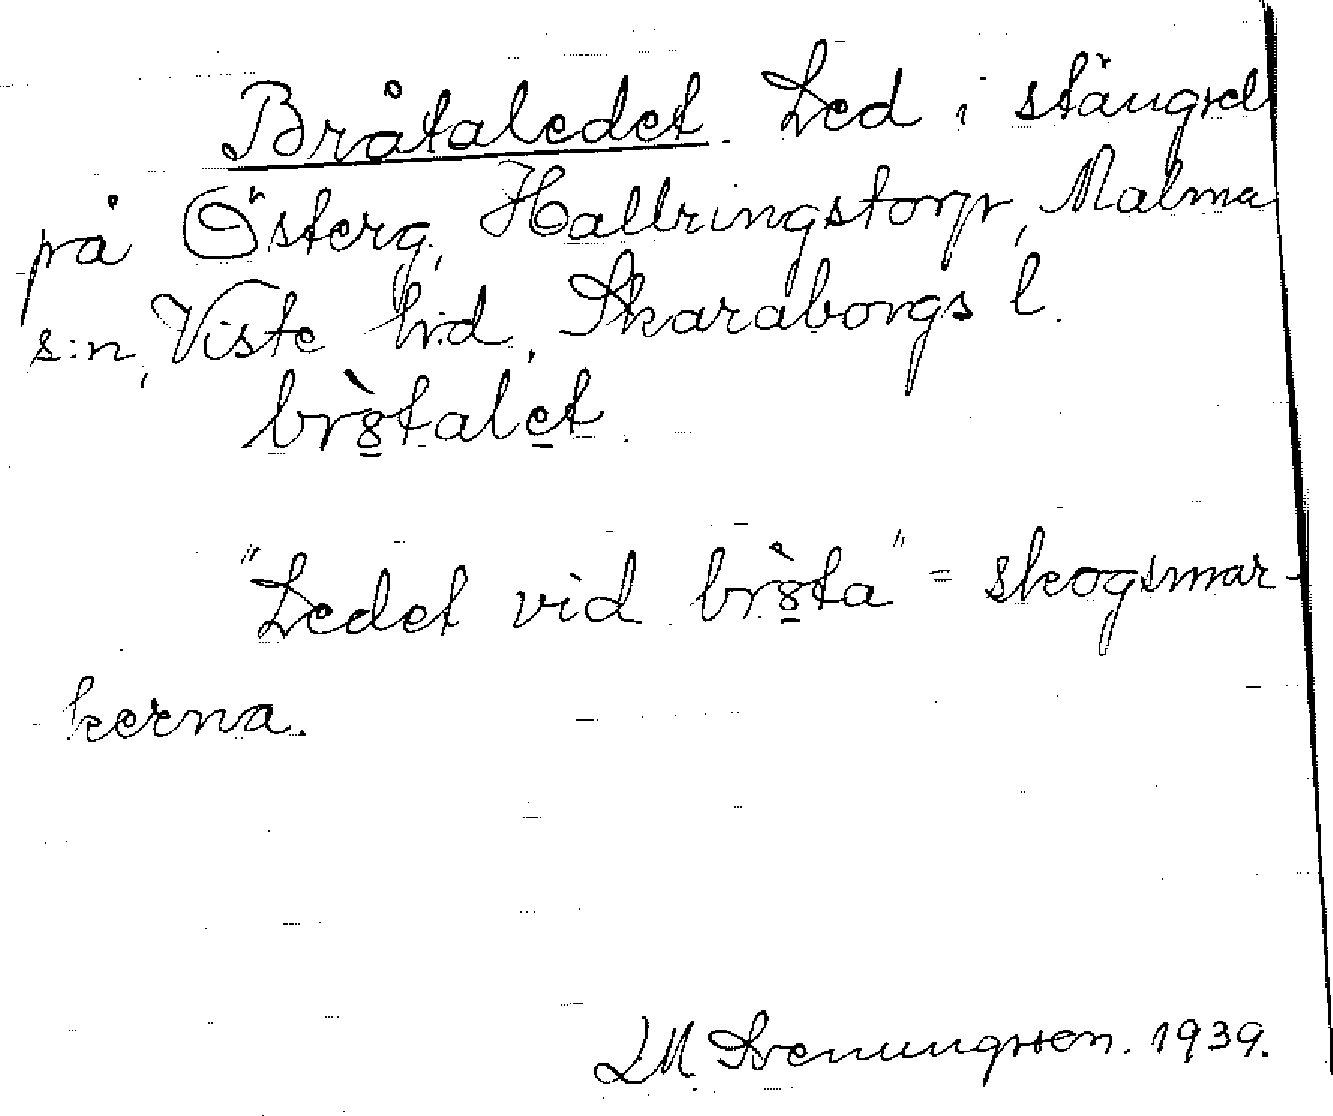 Bråtaledet. Led i stängsel
på Österg, Hallringstorp, Malma
s:n, Viste h:d, Skaraborgs l.
brꞷ̀talet.
"Ledet vid brꞷ̀ta" = skogsmar-
kerna.
LM. Svenungsson. 1939.